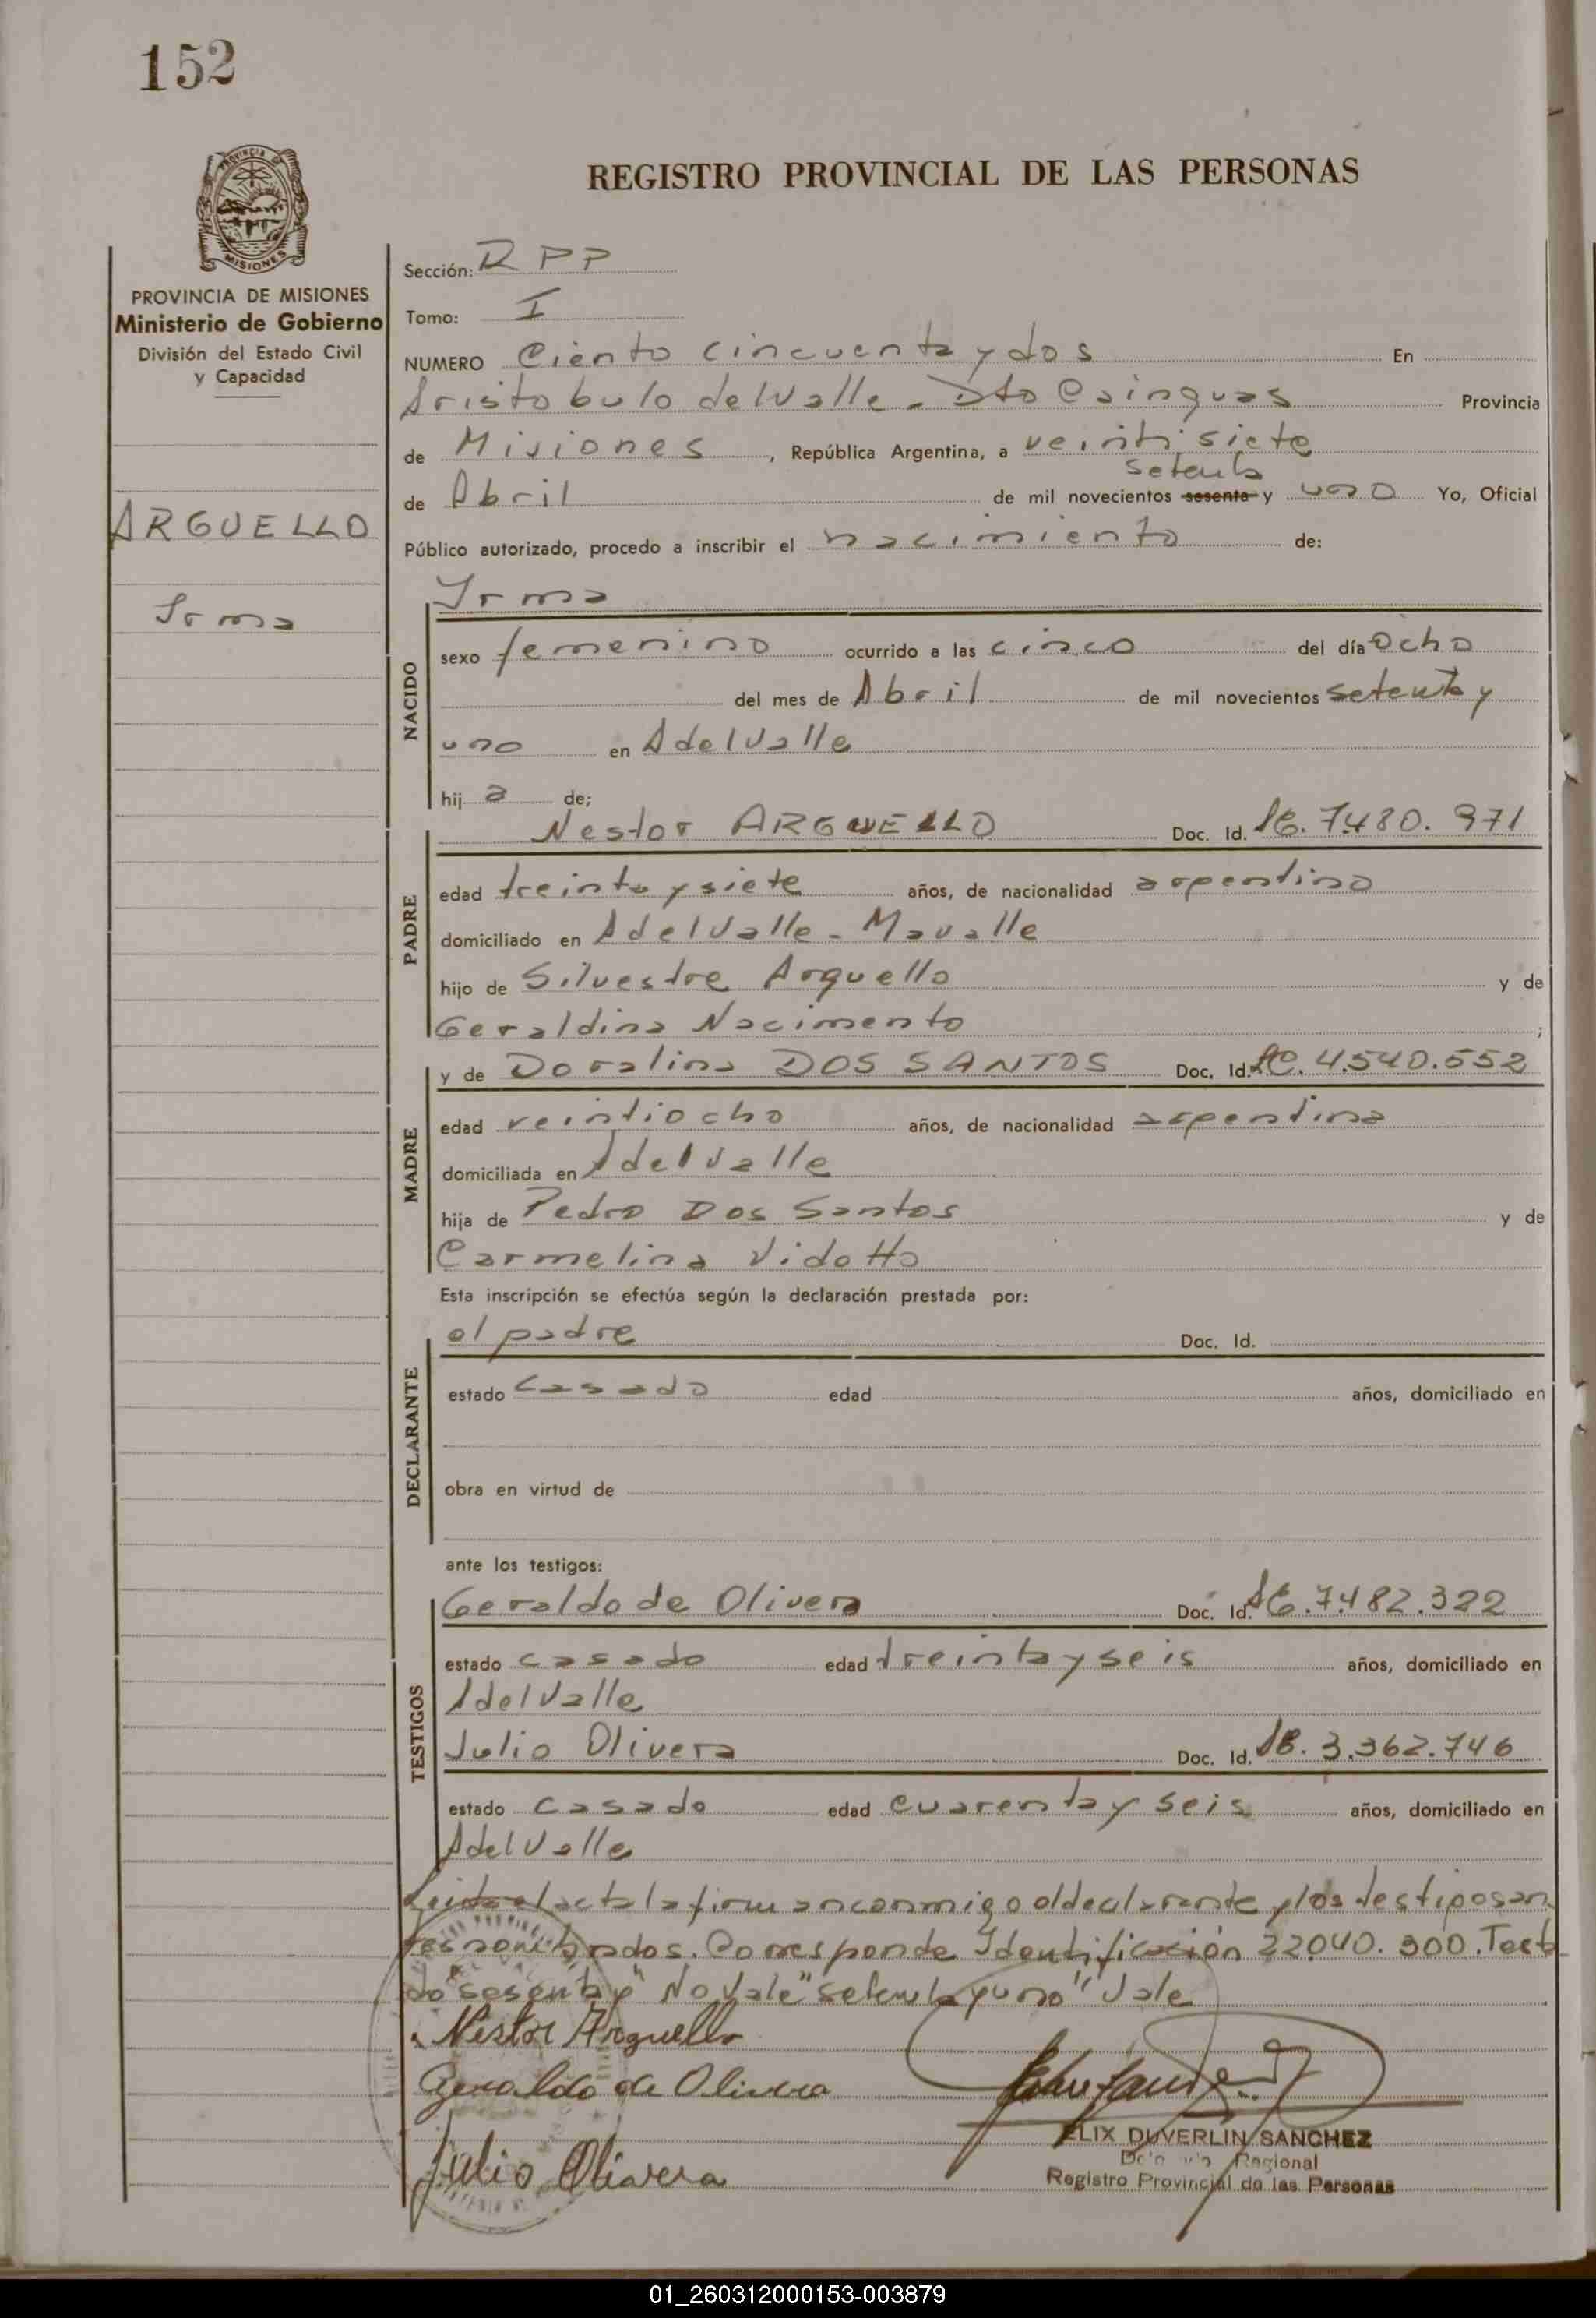 152
PROVINCIA DE
MISIONES
PROVINCIA DE MISIONES
Ministerio de Gobierno
División del Estado Civil
y Capacidad
ARGUELLO
Irma
REGISTRO PROVINCIAL DE LAS PERSONAS
Sección: R P P
Tomo: I
NUMERO Ciento cincuenta y dos En
Aristobulo del Valle - Dto Cainguas Provincia
de Misiones, República Argentina, a veintisiete
setenta
de Abril de mil novecientos sesenta y uno Yo, Oficial
Público autorizado, procedo a inscribir el nacimiento de:
NACIDO
Irma
sexo femenino ocurrido a las cinco del día ocho
del mes de Abril de mil novecientos setenta y
uno en AdelValle
hij a de;
PADRE
Nestor ARGUELLO Doc. Id. 7.480.971
edad treinta y siete años, de nacionalidad argentino
domiciliado en AdelValle - Mavalle
hijo de Silvestre Arguello y de
Geraldina Nacimento ;
MADRE
y de Doralina DOS SANTOS Doc. Id. 4.540.552
edad veintiocho años, de nacionalidad argentina
domiciliada en AdelValle
hija de Pedro Dos Santos y de
Carmelina Vidotto
Esta inscripción se efectúa según la declaración prestada por:
DECLARANTE
el padre Doc. Id.
estado casado edad años, domiciliado en
obra en virtud de
ante los testigos:
TESTIGOS
Geraldo de Olivera Doc. Id. 7.482.322
estado casado edad treinta y seis años, domiciliado en
AdelValle
Julio Olivera Doc. Id. 3.362.746
estado casado edad cuarenta y seis años, domiciliado en
AdelValle
Leida el acta la firman conmigo el declarante y los testigos an
tes nombrados. Corresponde Identificación 22.040.300. Testa
do "sesenta y" No Vale "setenta y uno" Vale
Nestor Arguello
Geraldo de Olivera
Julio Olivera
FELIX DUVERLIN SANCHEZ
Regional
Registro Provincial de las Personas
01_260312000153-003879